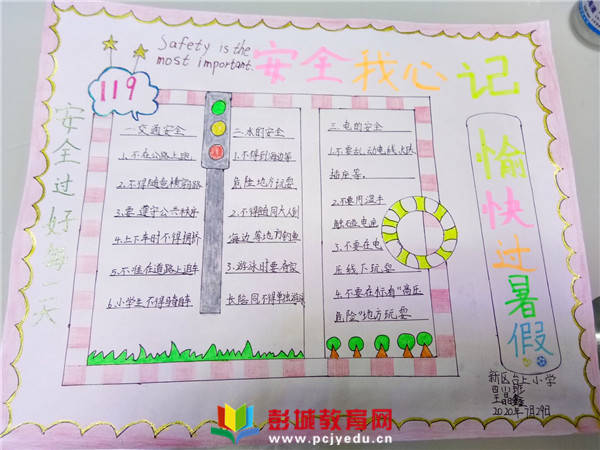 Safety is the
most important.
安全我心记
119
安全过好每一天
一.交通安全
1.不在公路上跑.
2.不得随意横穿马路
3.要遵守公共秩序
4.上下车时不得拥挤
5.不准在道路上追车
6.小学生不得骑自行车
二.水的安全
1.不得到海边等
危险地方玩耍
2.不得随同大人到
海边等地方钓鱼
3.游泳时要有家
长陪同不得单独游泳
三.电的安全
1.不要乱动电线、
插座等.
2.不要用湿手
触碰电
3.不要在电
压线下玩耍
4.不要在标有"高压
危险"地方玩耍
愉快过暑假
新区台上小学
2020年7月29日
彭城教育网
www.pcjyedu.cn